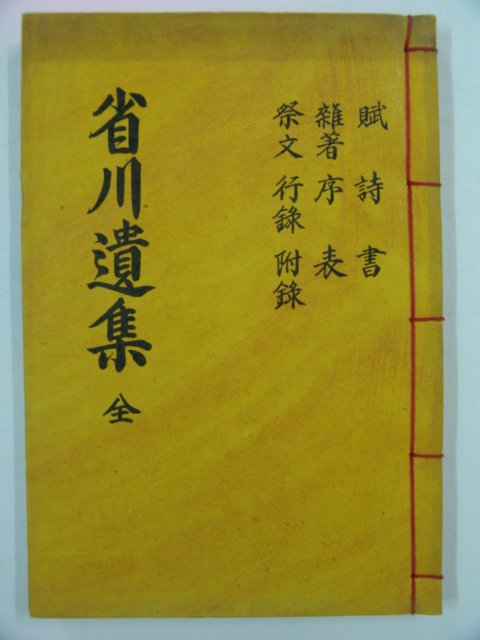 賦詩書
雜著序表
祭文行錄附錄
省川遺集全